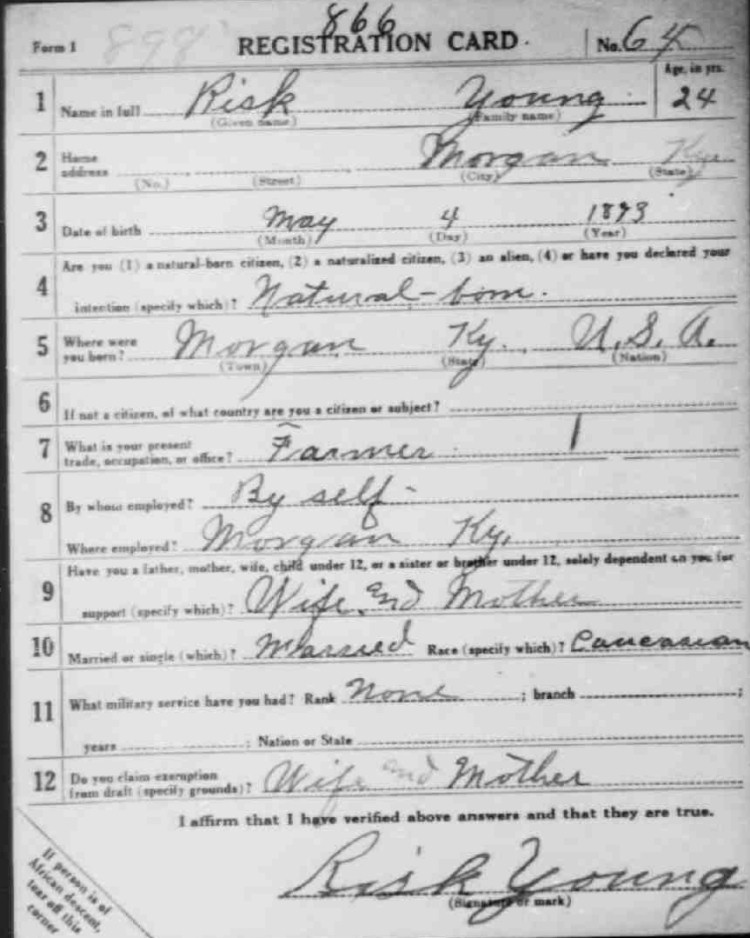 866
Form 1 898 REGISTRATION CARD. No. 64
Age, in yrs.
1 Name in full Risk Young 24
(Given name) (Family name)
2 Home address Morgan Ky.
(No.) (Street) (City) (State)
3 Date of birth May 4 1893
(Month) (Day) (Year)
Are you (1) a natural-born citizen, (2) a naturalized citizen, (3) an alien, (4) or have you declared your
4 intention (specify which)? Natural-born.
5 Where were you born? Morgan Ky. U.S.A.
(Town) (State) (Nation)
6 If not a citizen, of what country are you a citizen or subject?
7 What is your present trade, occupation, or office? Farmer
8 By whom employed? By self-
Where employed? Morgan Ky.
Have you a father, mother, wife, child under 12, or a sister or brother under 12, solely dependent on you for
9 support (specify which)? Wife and Mother
10 Married or single (which)? Married Race (specify which)? Caucasian
11 What military service have you had? Rank None ; branch ;
years ; Nation or State
12 Do you claim exemption from draft (specify grounds)? Wife and Mother
I affirm that I have verified above answers and that they are true.
Risk Young
(Signature or mark)
If person is of
African descent,
tear off this
corner